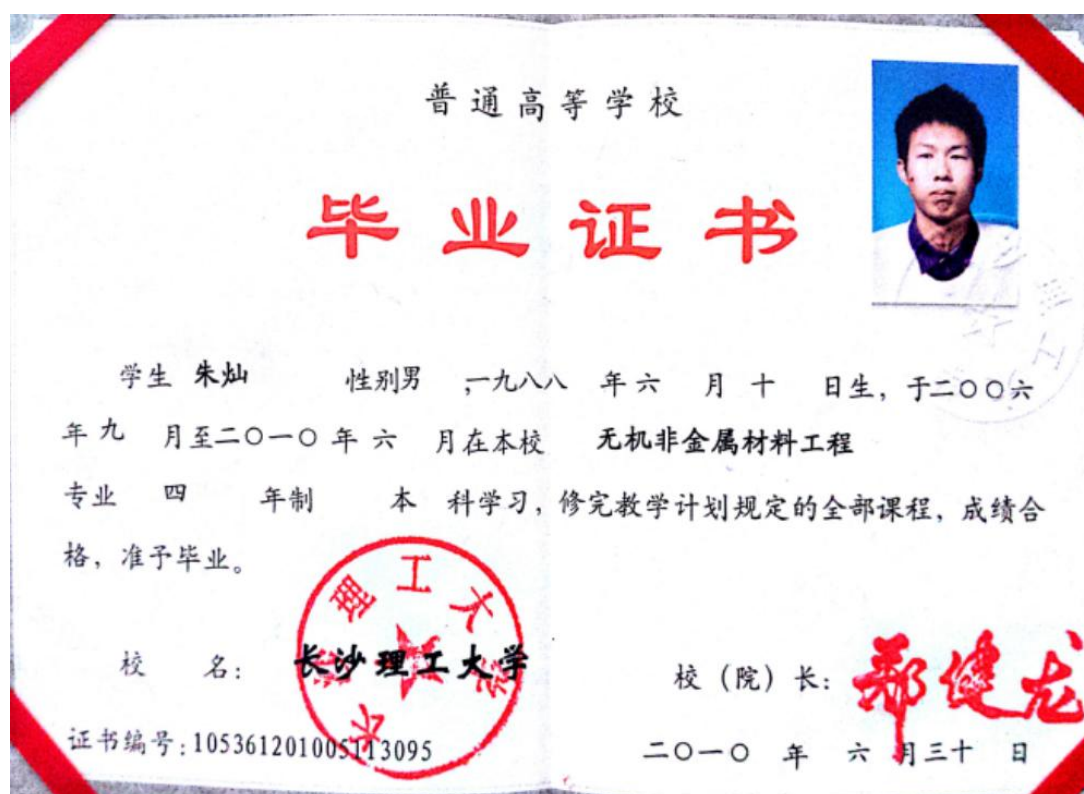 普通高等学校
毕业证书
学生 朱灿 性别男 ,一九八八 年六 月 十 日生，于二〇〇六
年九 月至二〇一〇年 六 月在本校 无机非金属材料工程
专业 四 年制 本 科学习，修完教学计划规定的全部课程，成绩合
格，准予毕业。
长沙理工大学
校 名： 长沙理工大学
校（院）长： 郑健龙
证书编号：105361201005113095
二〇一〇 年 六 月三十 日